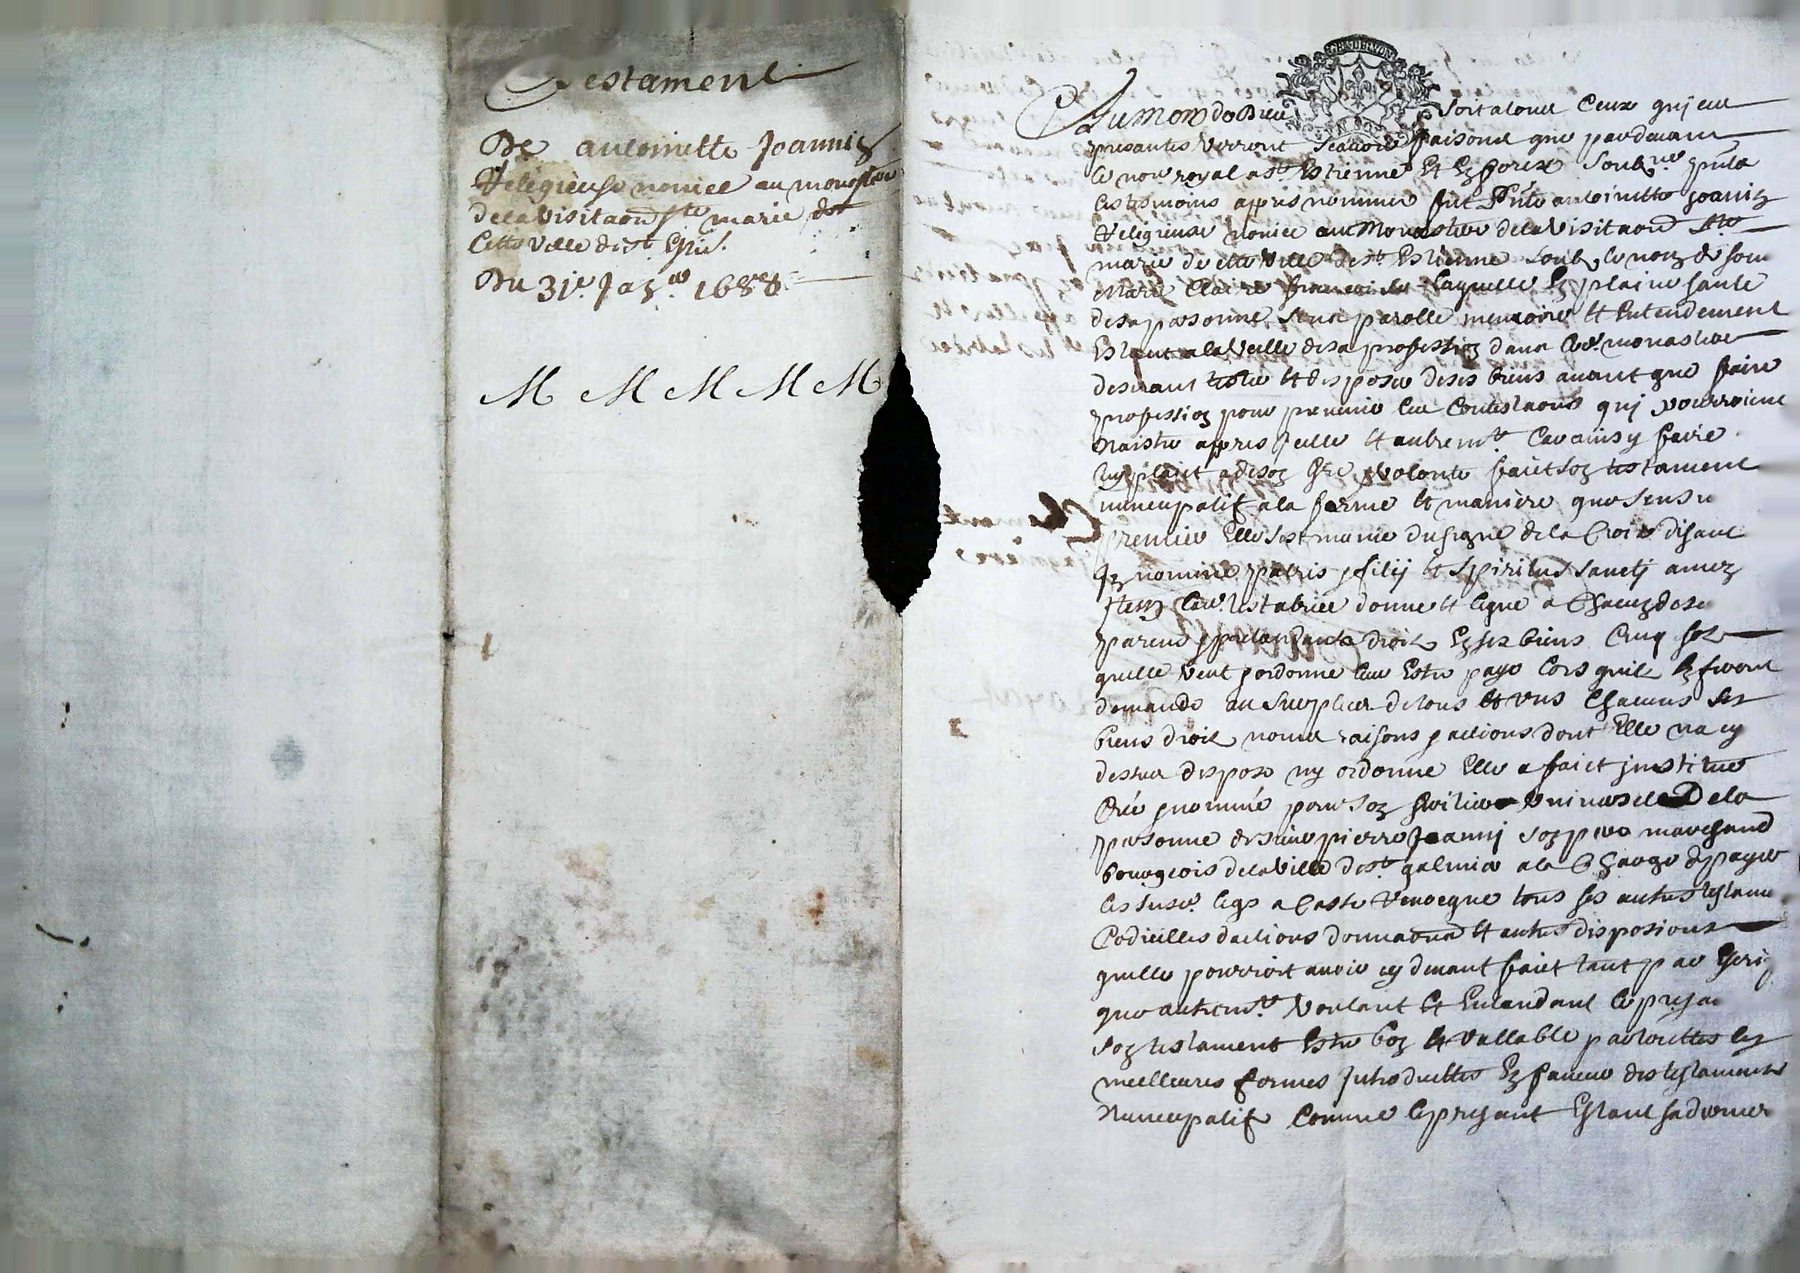 Testament
De antoinette Joannin
Relegieuse novice au monaste
de la Visitaon Ste marie de
Cette Ville de st Esti.
Du 31e Jaz. 1688
M M M M M
Au Nom de Dieu Soit a tous Ceux qui
presantes verront Scavoir faisons que pardevant
le nore royal a st Estienne Et Ez forez soubzne
les tesmoins apres nommes fut antoinette Joanin
Relegieuse novice au Monastere de la Visitaon Ste
marie de cette Ville de st Estienne soub le nom de soeur
Marie Claire francoise Laquelle Ez plaine sante
de sa personne sens parolle memoire Et Entendement
Estant a la Veille de sa profession dans led. monastere
desirant tester Et disposer de ses biens avant que faire
profession pour prevenir les Contestaons qui pourroient
Naistre appres Icelle Et autremt
a de son gre volonte faict son testament
nuncupatif a la forme Et maniere que sensu
premier Elle sest munie du signe de la Croix disant
In nomine patris filij Et spiritus sanctj amen
Item lad. testatrice donne Et legue a Chacun de ses
parens pretandants droit En ses biens Cinq solz
quelle veut ordonne leur Estre paye lors quilz En feront
demande au surplus de tous Et uns Chacuns ses
biens droit noms raisons actions dont Elle na cy
dessus dispose ny ordonne Elle a faict institue
Cree nommé pour son heritier universel De la
personne de sieur pierre Joannin son pere marchand
bourgeois de la Ville de st galmier a la Charge de payer
les susd. legs a Casse Revocque tous ses autres testame
Codicilles donnaons Et autres disposions
quelle pourroit avoir cy devant faict tant par
que autremt. Voulant Et Entandant le presan
son testament Estre bon Et vallable par touttes les
meilleures formes Introduittes En faveur des testaments
Nuncupatif Comme le presant Estant sa derniere